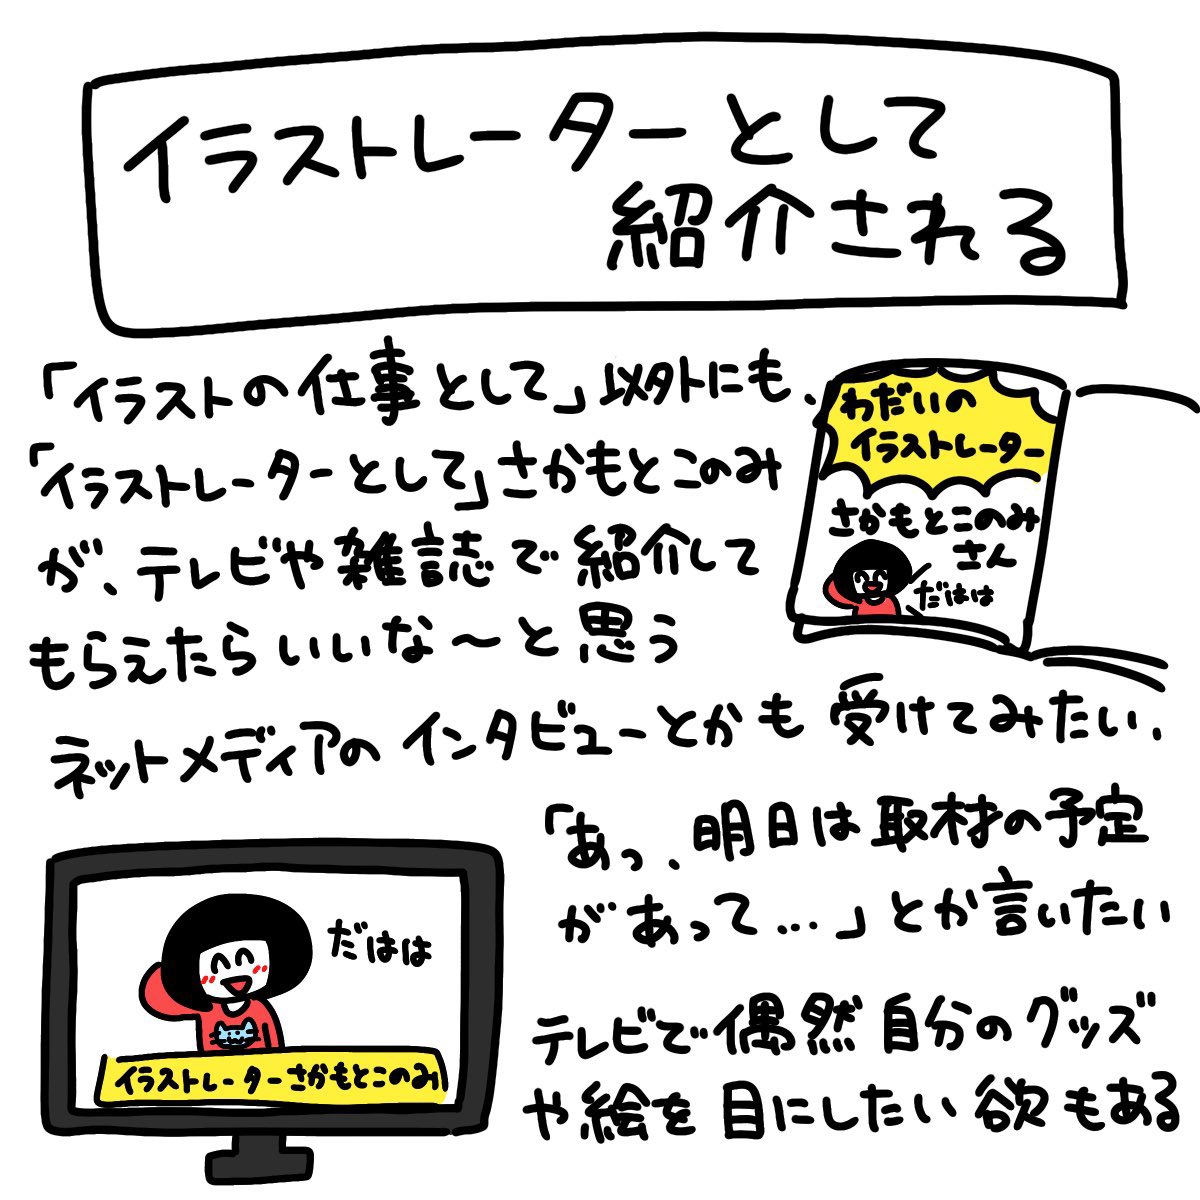 イラストレーターとして
紹介される
「イラストの仕事として」以外にも、
「イラストレーターとして」さかもとこのみ
が、テレビや雑誌で紹介して
もらえたらいいな〜と思う
わだいの
イラストレーター
さかもとこのみ
さん
だはは
ネットメディアのインタビューとかも受けてみたい、
「あっ、明日は取材の予定
があって…」とか言いたい
だはは
イラストレーターさかもとこのみ
テレビで偶然自分のグッズ
や絵を目にしたい欲もある